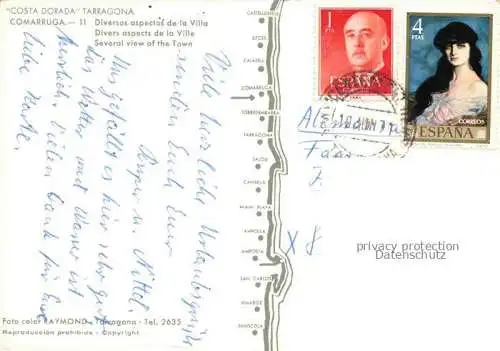 "COSTA DORADA" TARRAGONA
COMARRUGA.— 11
Diversos aspectos de la Villa
Divers aspects de la Ville
Several view of the Town
Viele herzliche Urlaubsgrüße
senden Euch Eure
u.
Uns gefällt es hier sehr gut
das Wetter und Wasser ist
herrlich. Vielen Dank für Eure
liebe Karte.
CALAFELL
COMARRUGA
TORREDEMBARRA
TARRAGONA
SALOU
CAMBRILS
MIAMI PLAYA
AMPOLLA
AMPOSTA
SAN CARLOS
VINAROZ
PEÑISCOLA
1 PTA
ESPAÑA
CORREOS
4 PTAS
CORREOS
ESPAÑA
privacy protection
Datenschutz
Foto color RAYMOND - Tarragona - Tel. 2635
Reproducción prohibida - Copyright